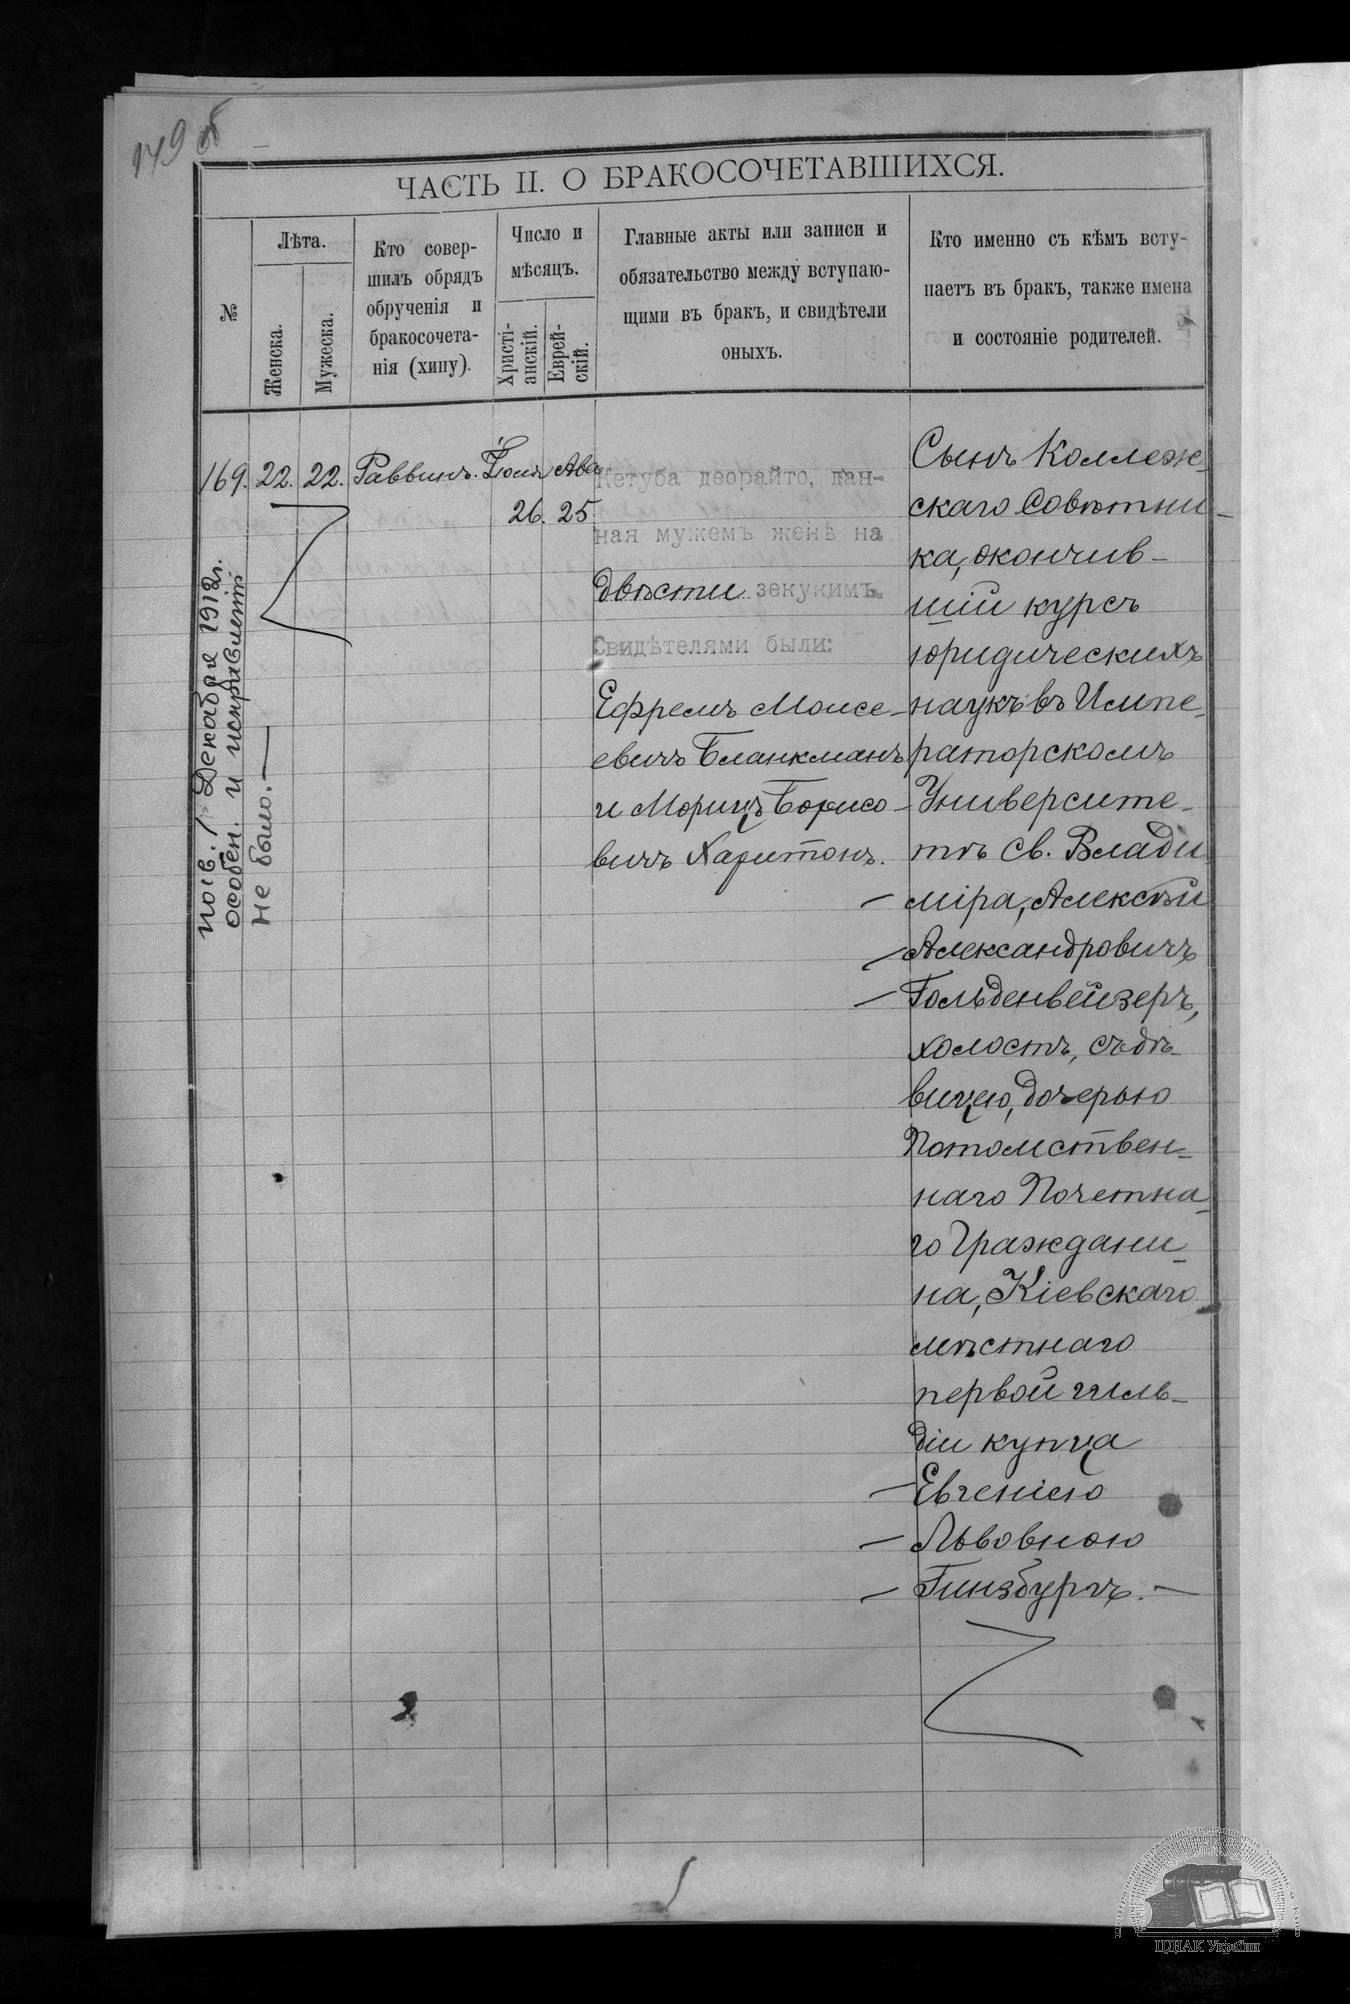 149 об
ЧАСТЬ II. О БРАКОСОЧЕТАВШИХСЯ.
№
Лѣта.
Женска.
Мужеска.
Кто совер-
шилъ обрядъ
обрученія и
бракосочета-
нія (хипу).
Число и
мѣсяцъ.
Христі-
анскій.
Еврей-
скій.
Главные акты или записи и
обязательство между вступаю-
щими въ бракъ, и свидѣтели
оныхъ.
Кто именно съ кѣмъ всту-
паетъ въ бракъ, также имена
и состояніе родителей.
169. 22. 22. Раввинъ. Іюля Ава
26. 25
Кетуба деорайто, дан-
ная мужемъ женѣ на
двѣсти зекукимъ.
Свидѣтелями были:
Ефремъ Моисе-
евичъ Бланкманъ
и Морицъ Борисо-
вичъ Харитонъ.
Сынъ Коллеж-
скаго Совѣтни-
ка, окончив-
шій курсъ
юридическихъ
наукъ въ Импе-
раторскомъ
Университе-
тѣ Св. Влади
міра, Алексѣй
Александровичъ
Гольденвейзеръ,
холостъ, съ дѣ-
вицею, дочерью
Потомствен-
наго Почетна-
го Граждани-
на, Кіевскаго
мѣстнаго
первой гиль-
діи купца
Евгеніею
Львовною
Гинзбургъ. —
Декабря 1912г.
особен. и исправленій
не было. —
ЦДІАК України